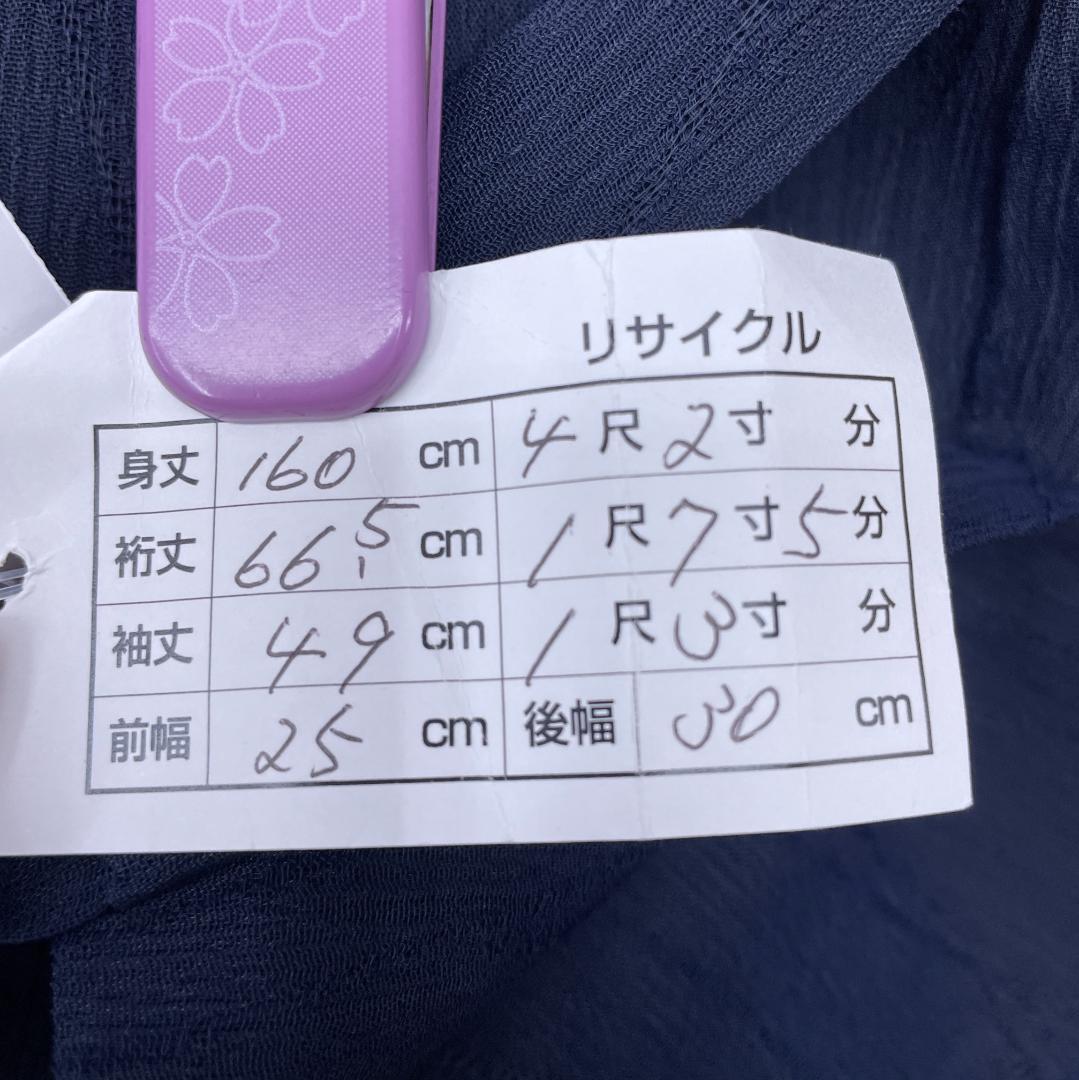 リサイクル
身丈 160 cm 4尺2寸 分
裄丈 66.5 cm 1尺7寸5分
袖丈 49 cm 1尺3寸 分
前幅 25 cm 後幅 30 cm